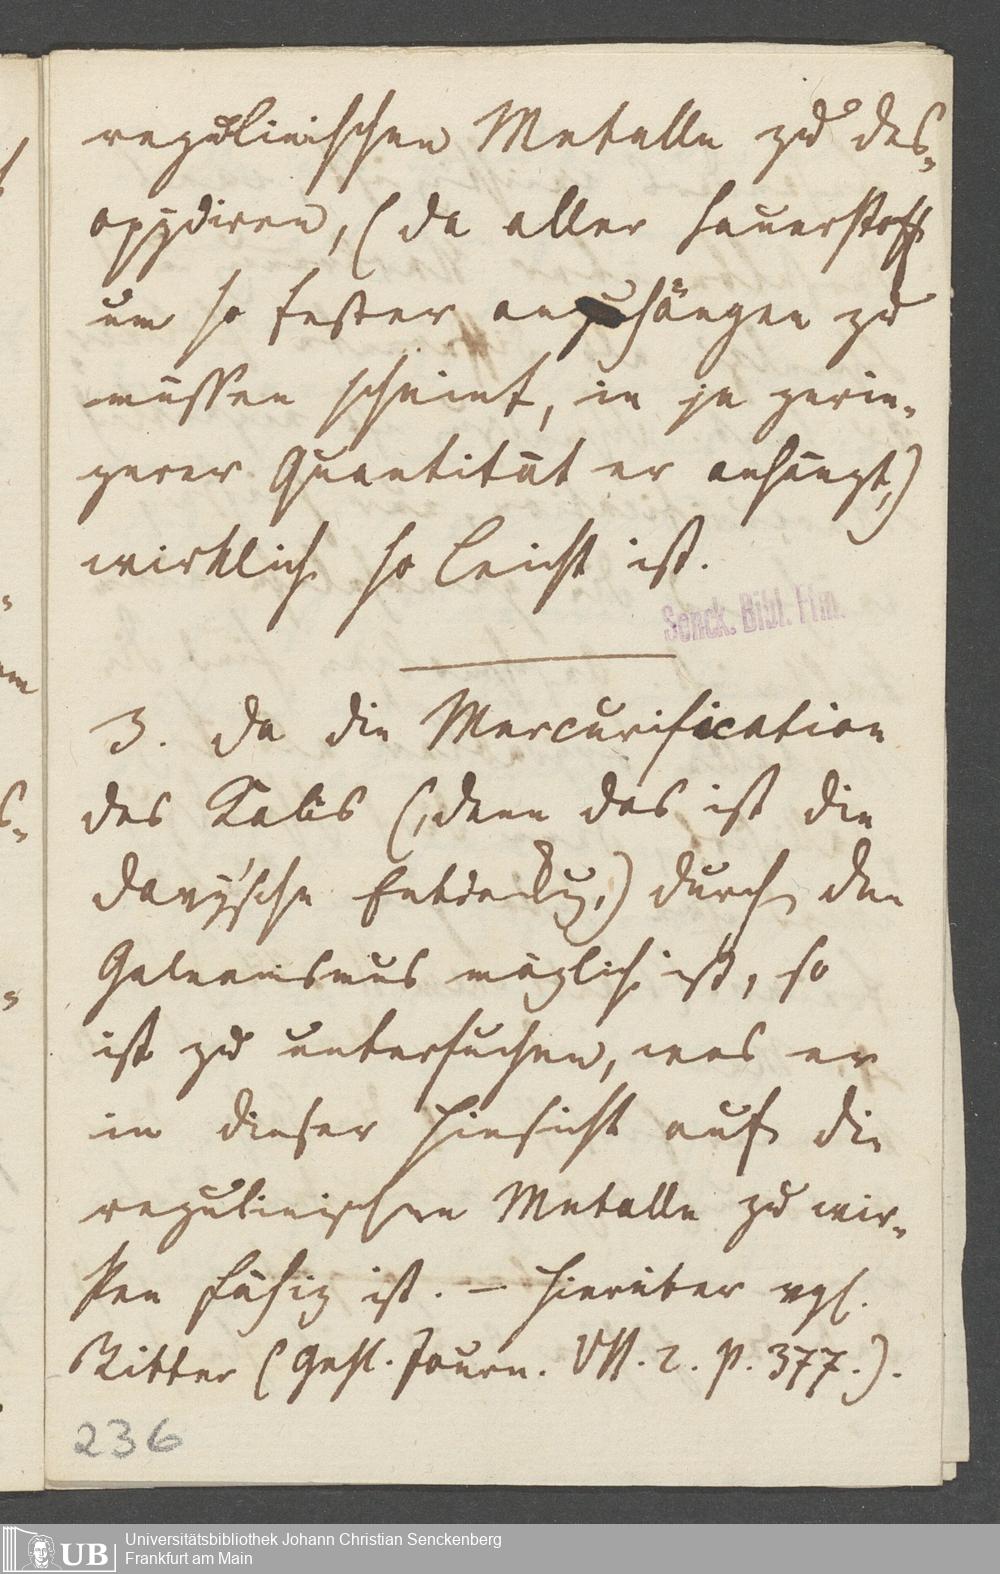 regulinischen Metalle zu des-
oxydiren, (da aller Sauerstoff
um so fester anhängen zu
müssen scheint, in je gerin-
gerer Quantität er anhängt,)
wirklich so leicht ist.
Senck. Bibl. Ffm.
3. Da die Mercurification
des Kalis (,denn das ist die
Davy'sche Entdeckg,) durch den
Galvanismus möglich ist, so
ist zu untersuchen, was er
in dieser Hinsicht auf die
regulinischen Metalle zu wir-
ken fähig ist. – Hierüber vgl.
Ritter (Gehl. Journ. VII. 2. p. 377.).
236
UB
Universitätsbibliothek Johann Christian Senckenberg
Frankfurt am Main